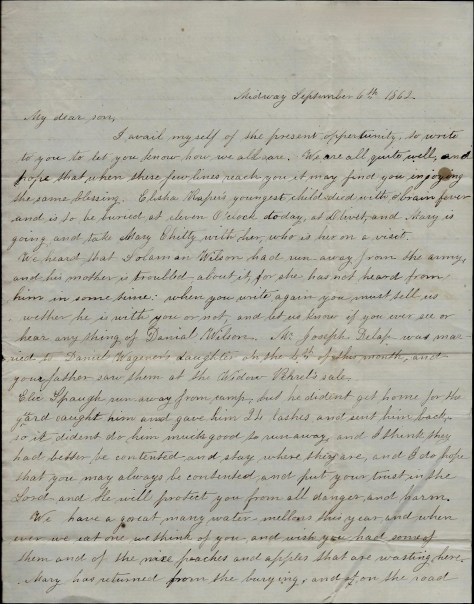 Midway September 6th 1862.
My dear son,
I avail myself of the present oppertunity, to write
to you to let you know how we all are. We are all quite well, and
hope that when these few lines reach you it may find you injoying
the same blessing. Elisha Raper's youngest child died with brain fever
and is to be buried at eleven O'clock to day, at and Mary is
going and take Mary Chitty with her, who is here on a visit.
We heard that Solaman Wilson had run away from the army,
and his mother is troubled about it, for she has not heard from
him in some time: when you write again you must tell us
wether he is with you or not, and let us know if you ever see or
hear any thing of Danial Wilson. Mr. Joseph Delap was mar
ried to Daniel Wagener's daughter on the 4th of this month, and
your father saw them at the Widow sale.
Elic Spaugh run away from camp, but he dident get home for the
gard caught him and gave him 24 lashes and sent him back,
so it dident do him much good to run away, and I think they
had better be contented and stay where they are, and I do hope
that you may always be contented and put your trust in the
Lord and He will protect you from all danger and harm.
We have a great many water mellons this year and when
ever we eat one we think of you and wish you had some of
them and of the nice peaches and apples that are wasting here.
Mary has returned from the burying, and on the road